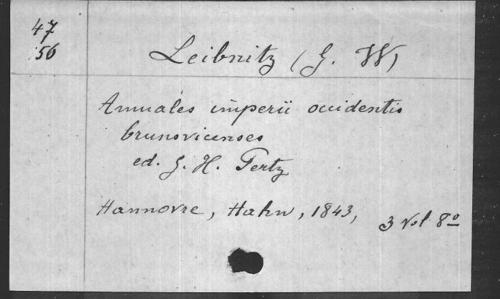 47
56
Leibnitz (G. W)
Annales imperii occidentis
brunsvicenses
ed. G. H. Pertz
Hannovre, Hahn, 1843,
3 Vol 8º